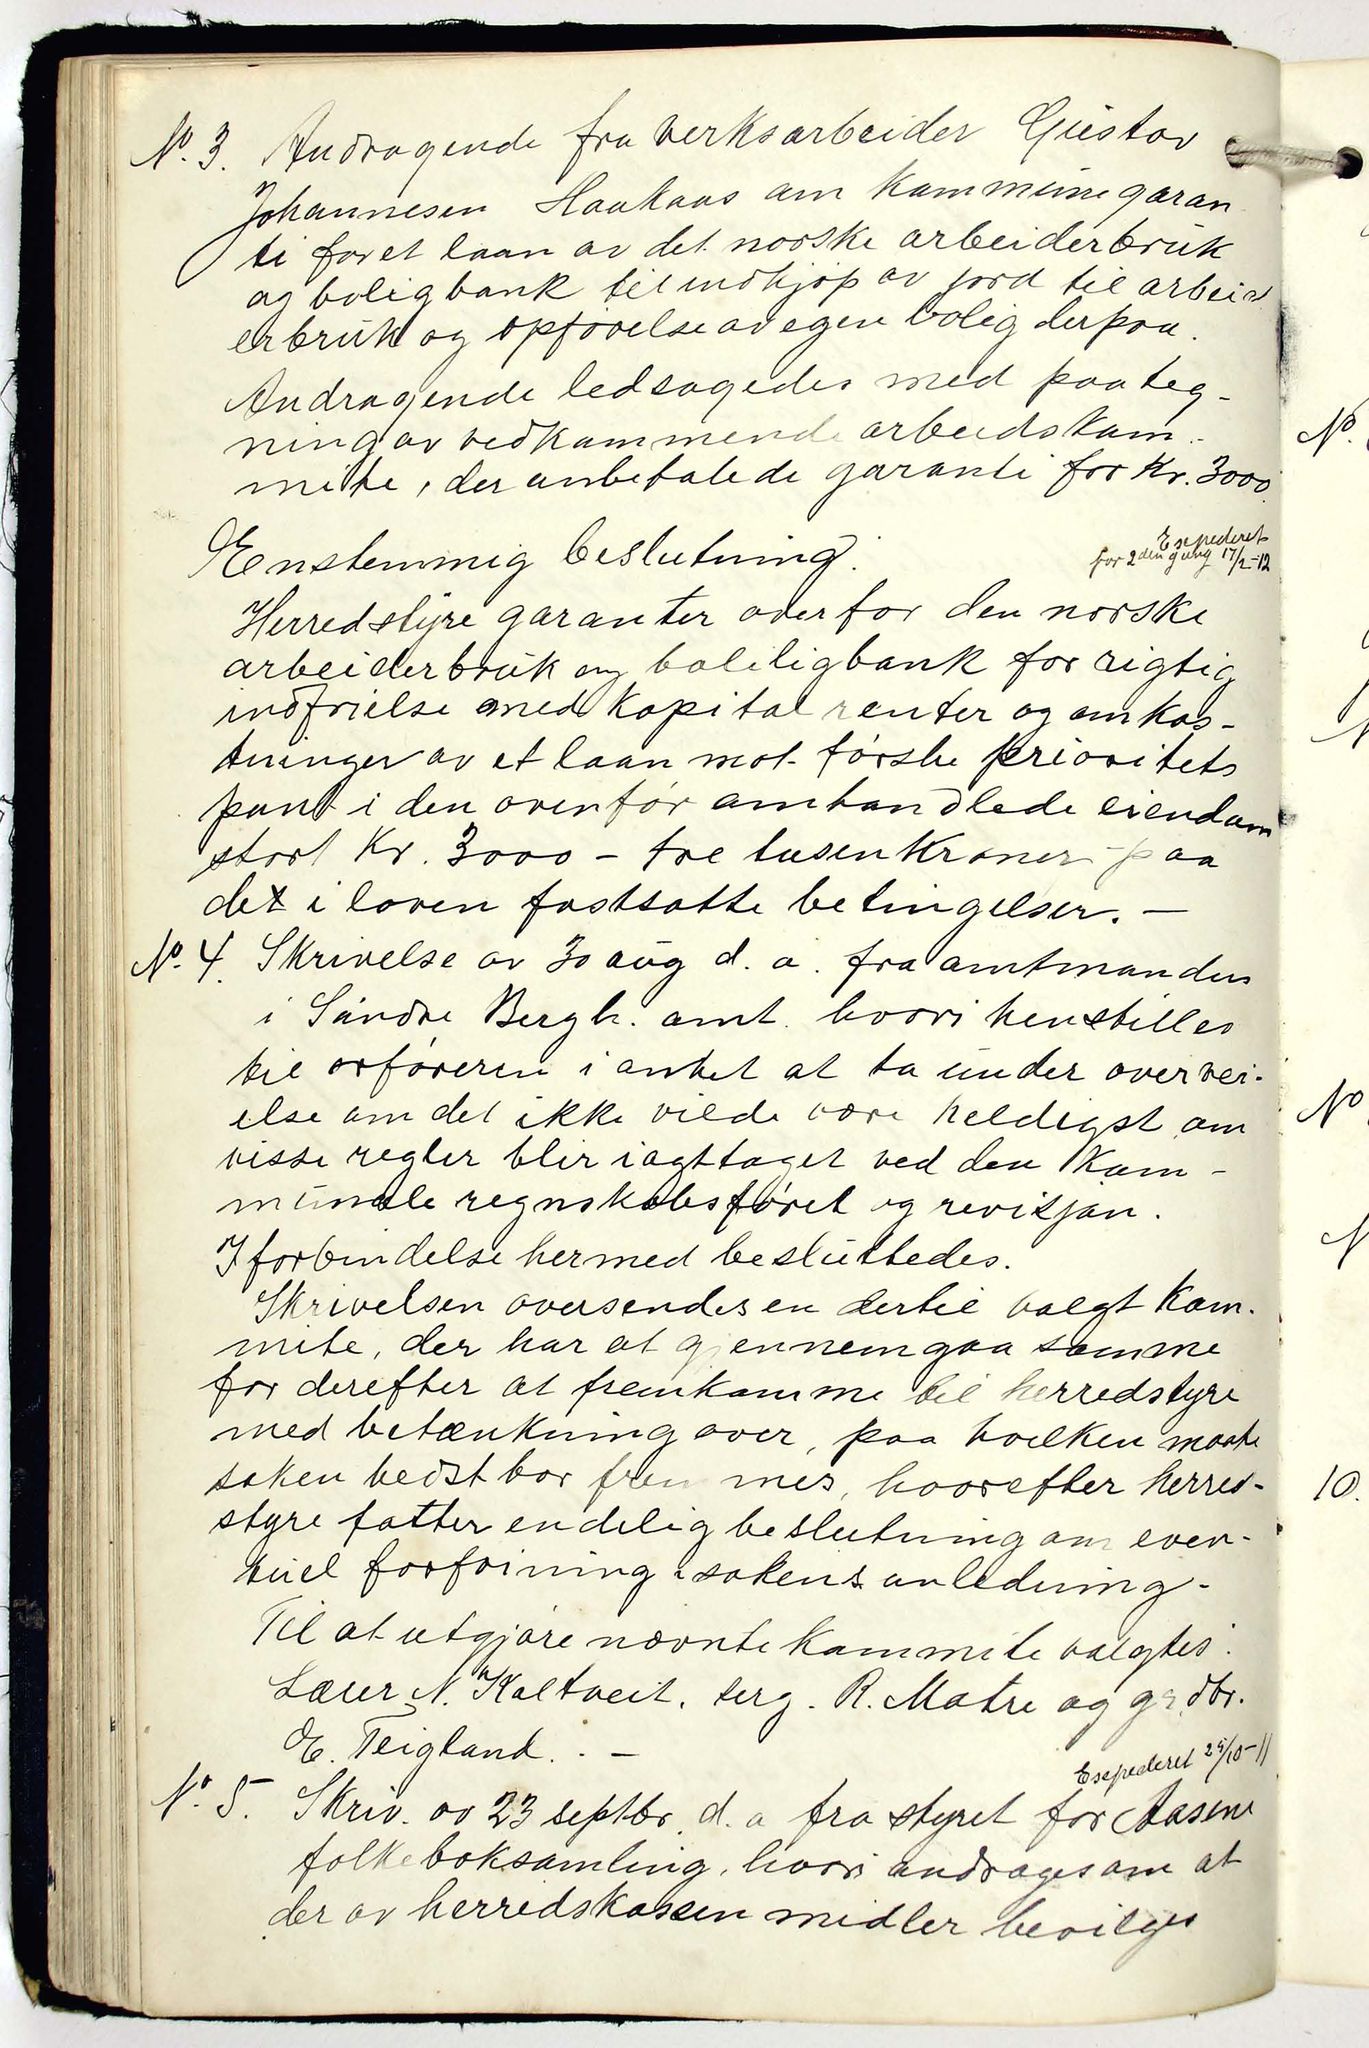 No. 3. Andragende fra verksarbeider Gustav
Johannesen Haakaas om kommunegaran
ti for et laan av det norske arbeiderbruk
og boligbank til indkjøp av jord til arbeid
erbruk og opførelse av egen bolig derpaa.
Andragende ledsagedes med paateg-
ning av vedkommende arbeidskom-
mite, der anbefalede garanti for Kr. 3000.
Enstemmig beslutning:
Expederet
for 2den gang 17/2-12
Herredstyre garanter overfor den norske
arbeiderbruk og boliligbank for rigtig
indfrielse med kapital renter og omkos-
tninger av et laan mot første prioritets
pant i den ovenfor omhandlede eiendom
stort Kr. 3000 - tre tusen kroner - paa
det i loven fastsatte betingelser. -
No. 4. Skrivelse av 30 aug d. a. fra amtmanden
i Søndre Bergh. amt. hvori henstilles
til orføreren i amtet at ta under overvei-
else om det ikke vilde være heldigst om
visse regler blir iagttaget ved den kom-
munale regnskabsføret og revisjon.
I forbindelse hermed besluttedes.
Skrivelsen oversendes en dertil valgt kom-
mite, der har at gjennemgaa samme
for derefter at fremkomme til herredstyre
med betænkning over, paa hvilken maate
saken bedst bør fremmes, hvorefter herred-
styre fatter endelig beslutning om even-
tuel forføining i sakens anledning.
Til at utgjøre nævnte kommite valgtes:
Lærer N. Kaltveit, serg. R. Matre og grdbr.
E. Teigland. . -
Expederet 25/10-11
No. 5. Skriv. av 23 septbr. d. a fra styret for Aasene
folkeboksamling, hvori andrages om at
der av herredskassen midler bevilges
No.
No
N
10.